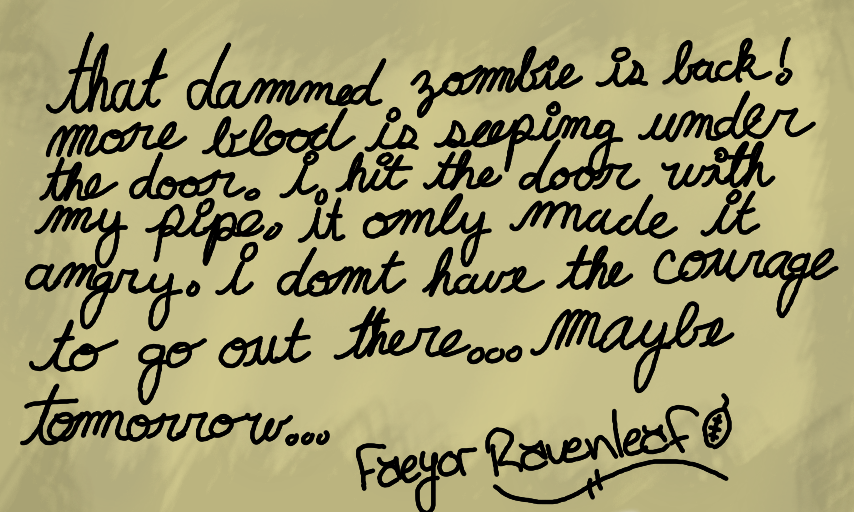 that dammed zombie is back!
more blood is seeping under
the door. i hit the door with
my pipe. it only made it
angry. i dont have the courage
to go out there... maybe
tomorrow...
Faeyor Ravenleaf